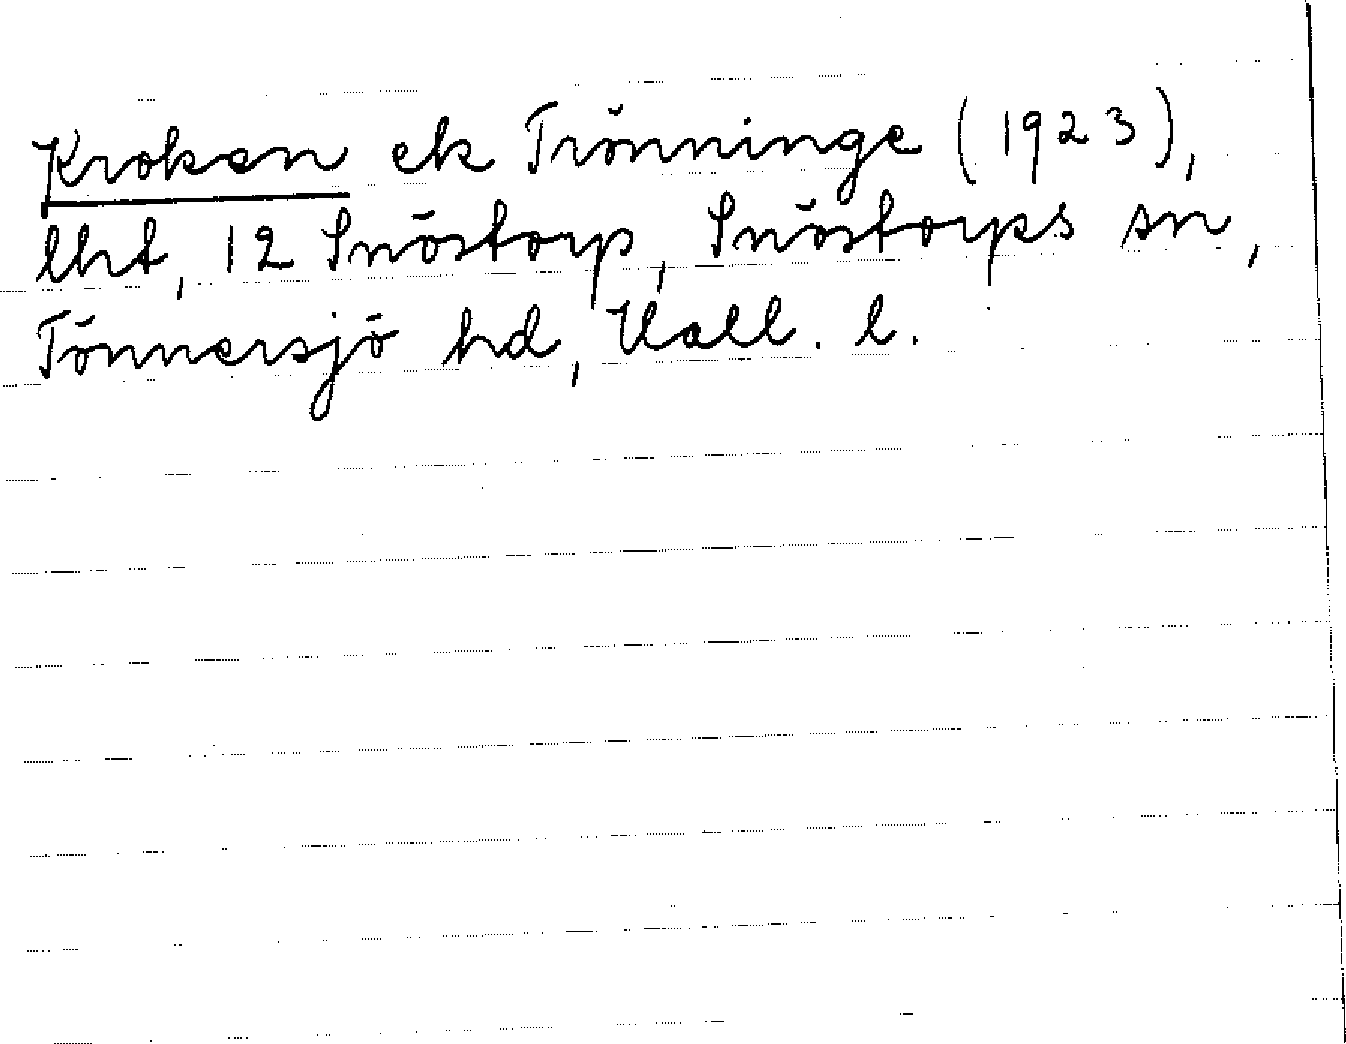 Kroken ek Trönninge (1923),
lht, 12 Snöstorp, Snöstorps sn,
Tönnersjö hd, Hall. l.